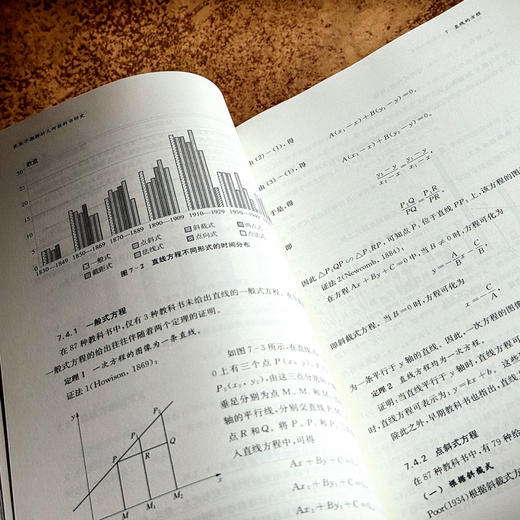 美英早期解析几何教科书研究
数量
30
25
20
15
10
5
0
1830—1849 1850—1869 1870—1889 1890—1909 1910—1929 1930—
一般式 点斜式 斜截式 两点式
截距式 法线式 点向式 点法式
图 7-2 直线方程不同形式的时间分布
7.4.1 一般式方程
在 87 种教科书中,仅有 3 种教科书未给出直线的一般式方程。
一般式方程的给出往往伴随着两个定理的证明。
定理 1 一次方程的图像为一条直线。
证法 1(Howison, 1869):
如图 7-3 所示,在直线
上有三个点 P(x, y)、P
P₂(x₂, y₂),由这三点分别
垂足分别为点 M、M₁ 和 M
轴的平行线,分别交直线 P
点 R 和 Q。将 P、P₁ 和 P₂
入直线方程中,可得
Ax+By+C=0,
Ax₁+By₁+C=
Ax₂
y P₂ P₁ P R Q O M M₁ M₂ x
7 直线的方程
由(2)-(1),得
A(x₁-x)+B(y₁-y)=0,
由(3)-(1),得
A(x₂-x)+B(y₂-y)=0,
于是,得
y₂-y/x₂-x=y₁-y/x₁-x,
即
P₂Q/PQ=P₁R/PR。
因此△P₂QP∽△P₁RP,可知点 P₁ 位于直线 PP₂ 上,该方程的图
证法 2(Newcomb, 1884):
在方程 Ax+By+C=0 中,当 B≠0 时,方程可化为
y=-A/B x-C/B,
即斜截式方程。当 B=0 时,方程可化为
x=-C/A,
为一条平行于 y 轴的直线。因此,一次方程的图像
定理 2 直线方程均为一次方程。
证明:当直线平行于 y 轴时,直线方程可
时,直线方程可表示为:y=kx+b。这些
除此之外,早期教科书也指出,直线
7.4.2 点斜式方程
在 87 种教科书中,有 79 种给
(一) 根据斜截式
Poor(1934)根据斜截式方